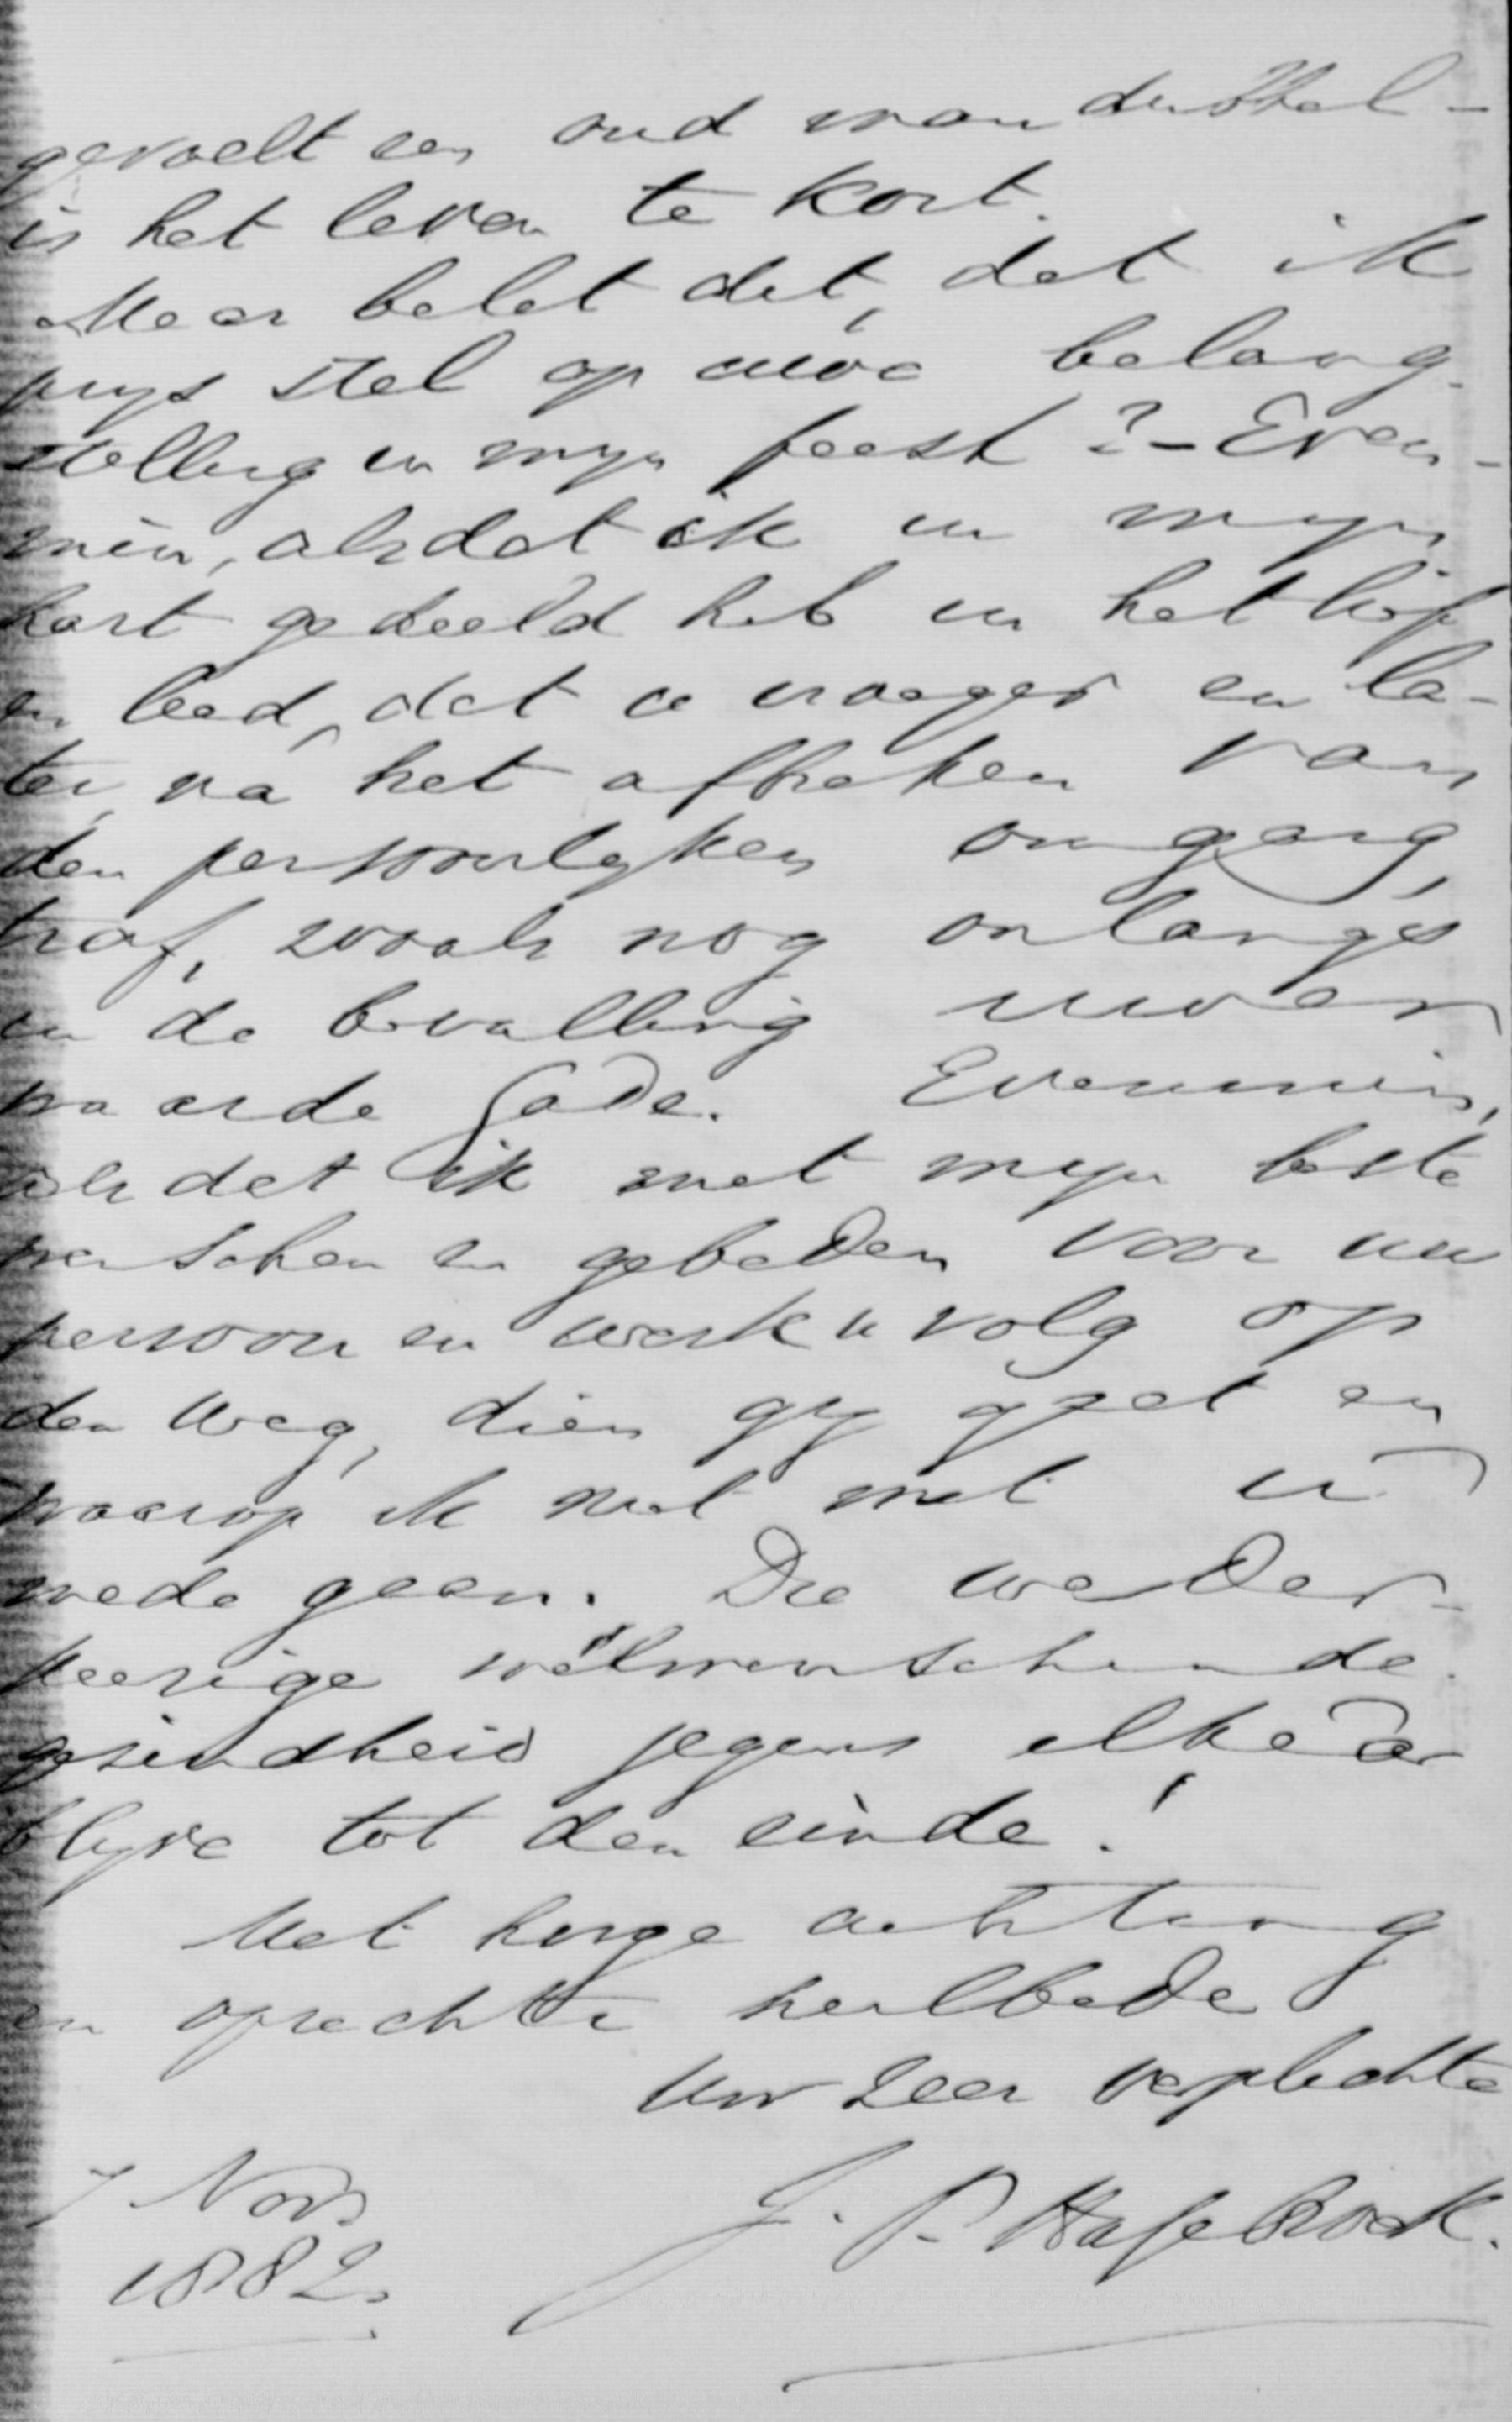 gevoelt een oud man dubbel -
is het leven te kort.
Maar belet dit, dat ik
prys stel op uwe belang-
stelling in myn feest? - Even-
min, als dat ik in myn
hart gedeeld heb in het lief
en leed, dat u vroeger en la-
ter, na het afbreken van
den persoonlyken omgang,
trof, zooals nog onlangs
in de bevalling uwer
waarde Gade. Evenmin,
als dat ik met myn beste
wenschen en gebeden voor uw
persoon en werk u volg op
den weg, dien gy gaat en
waarop ik niet met u
mede gaan. Die weder-
keerige wèlmenschende
gezindheid jegens elkaâr
blyve tot den einde!
Met hooge achting
en oprechte heilbede
Uw zeer verplichte
J. P. Hasebroek.
7 Nov.
1882.